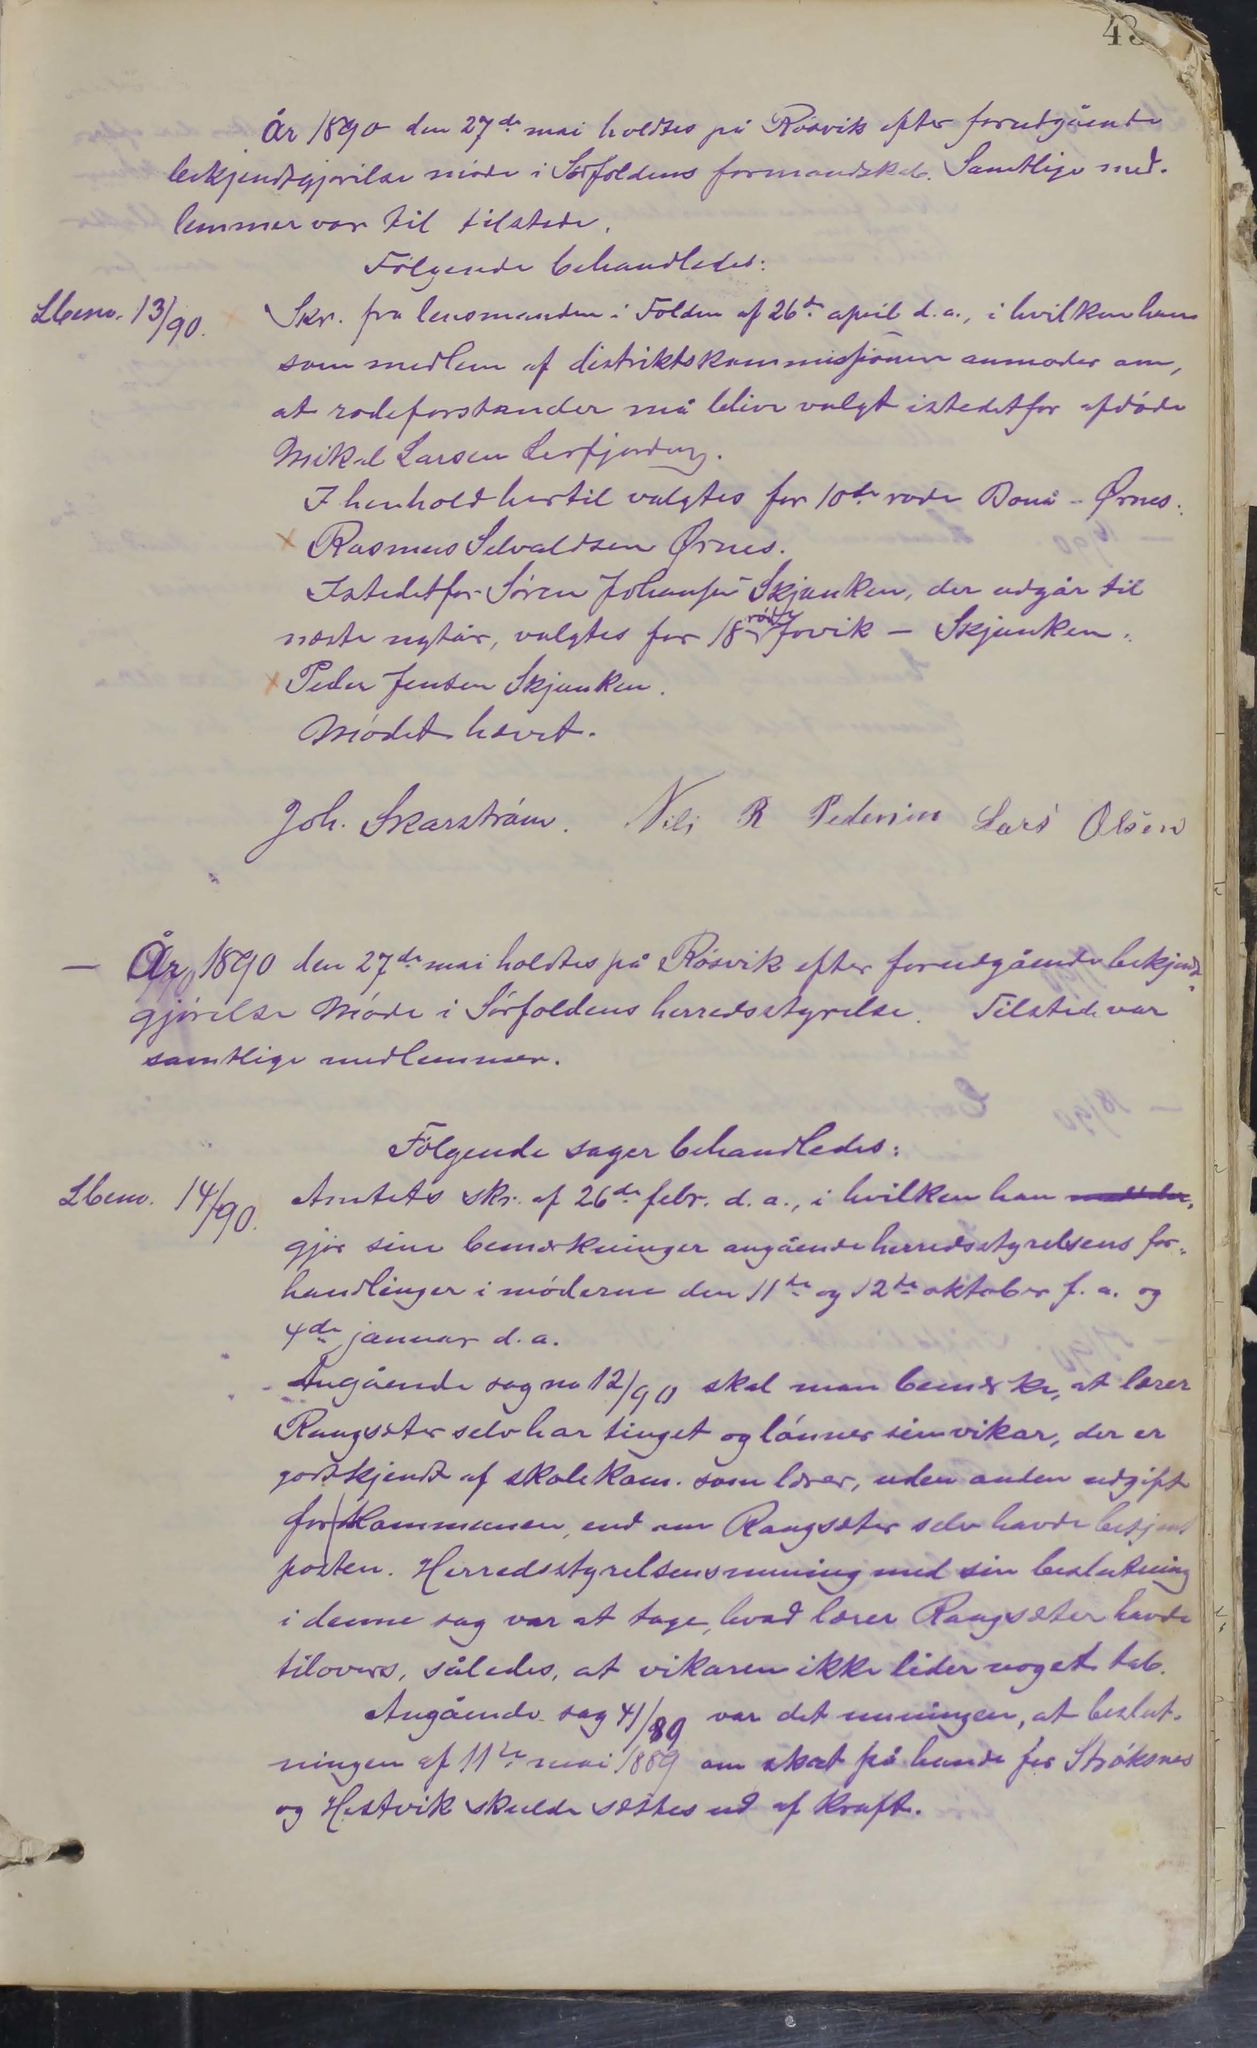 43
År 1890 den 27de mai holdtes på Røsvik efter forudgående
bekjendtgjørelse møde i Sørfoldens formandskab. Samtlige med-
lemmer var til tilstede.
Følgende behandledes:
Lbeno. 13/90. Skr. fra lensmanden i Folden af 26de april d.a., i hvilken han
som medlem af distriktskommissionen anmoder om,
at rodeforstander må blive valgt istedetfor afdøde
Mikal Larsen Lerfjord
I henhold hertil valgtes for 10de rode Bonå - Ørnes:
x Rasmus Sevaldsen Ørnes.
Istedetfor Søren Johansen Skjunken, der udgår til
næste nytår, valgtes for 18 rode Jovik - Skjunken:
x Peder Jensen Skjunken.
Mødet hævet.
Joh. Skarstrøm. Nils R Pedersen Lars Olsen
— År 1890 den 27de mai holdtes på Røsvik efter forudgående bekjendt-
gjørelse Møde i Sørfoldens herredsstyrelse. Tilstede var
samtlige medlemmer.
Følgende sager behandledes:
Lbeno. 14/90. Amtets skr. af 26de febr. d.a., i hvilken han
gjør sine bemærkninger angående herredsstyrelsens for-
handlinger i møderne den 11te og 12te oktober f.a. og
4de januar d.a.
Angående sag no 12/90 skal man bemærke, at lærer
Rangsæter selv har tinget og lønner sin vikar, der er
godkjendt af skolekom. som lærer, uden anden udgift
for Kommunen, end om Rangsæter selv havde betjent
posten. Herredsstyrelsens mening med sin beslutning
i denne sag var at tage, hvad lærer Rangsæter havde
tilovers, således, at vikaren ikke lider noget tab.
Angående sag 41/89 var det meningen, at beslut-
ningen af 11te mai 1889 om skat på hunde for Strøksnes
og Hestvik skulde sættes ud af kraft.